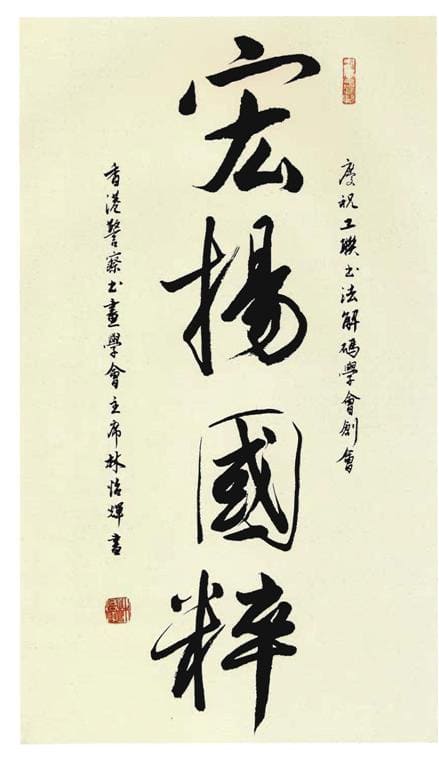 慶祝工聯书法解碼學會創會
宏揚國粹
香港警察书畫學會主席林怡輝書